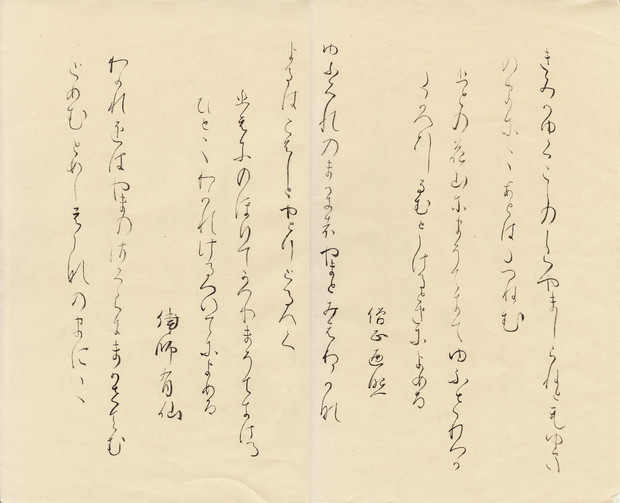 きみかゆくこしのしらやましらねと毛ゆき
のまに〱あとはたつねむ
ひとの花山にまうてきてゆふさりつか
たかへりなむとしけるときによめる
僧正遍照
ゆふくれのまかきはやまとみえ
よるはこえしとやとりとるへく
やまにのほりてかへりまうてき
ひと〱わかれけるついてによめる
律師 仙
わかれをはやまのさくらにまかせてむ
とめむとめしははなのまに〱